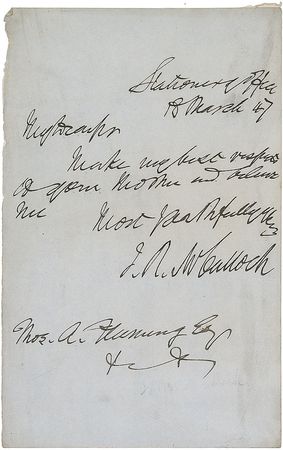 Stationery Office
18 March 47
My dear Sir
Make my best respects
to your Mother and believe
me
Most faithfully yrs
J. R. McCulloch
Thos. A. Fleming Esq